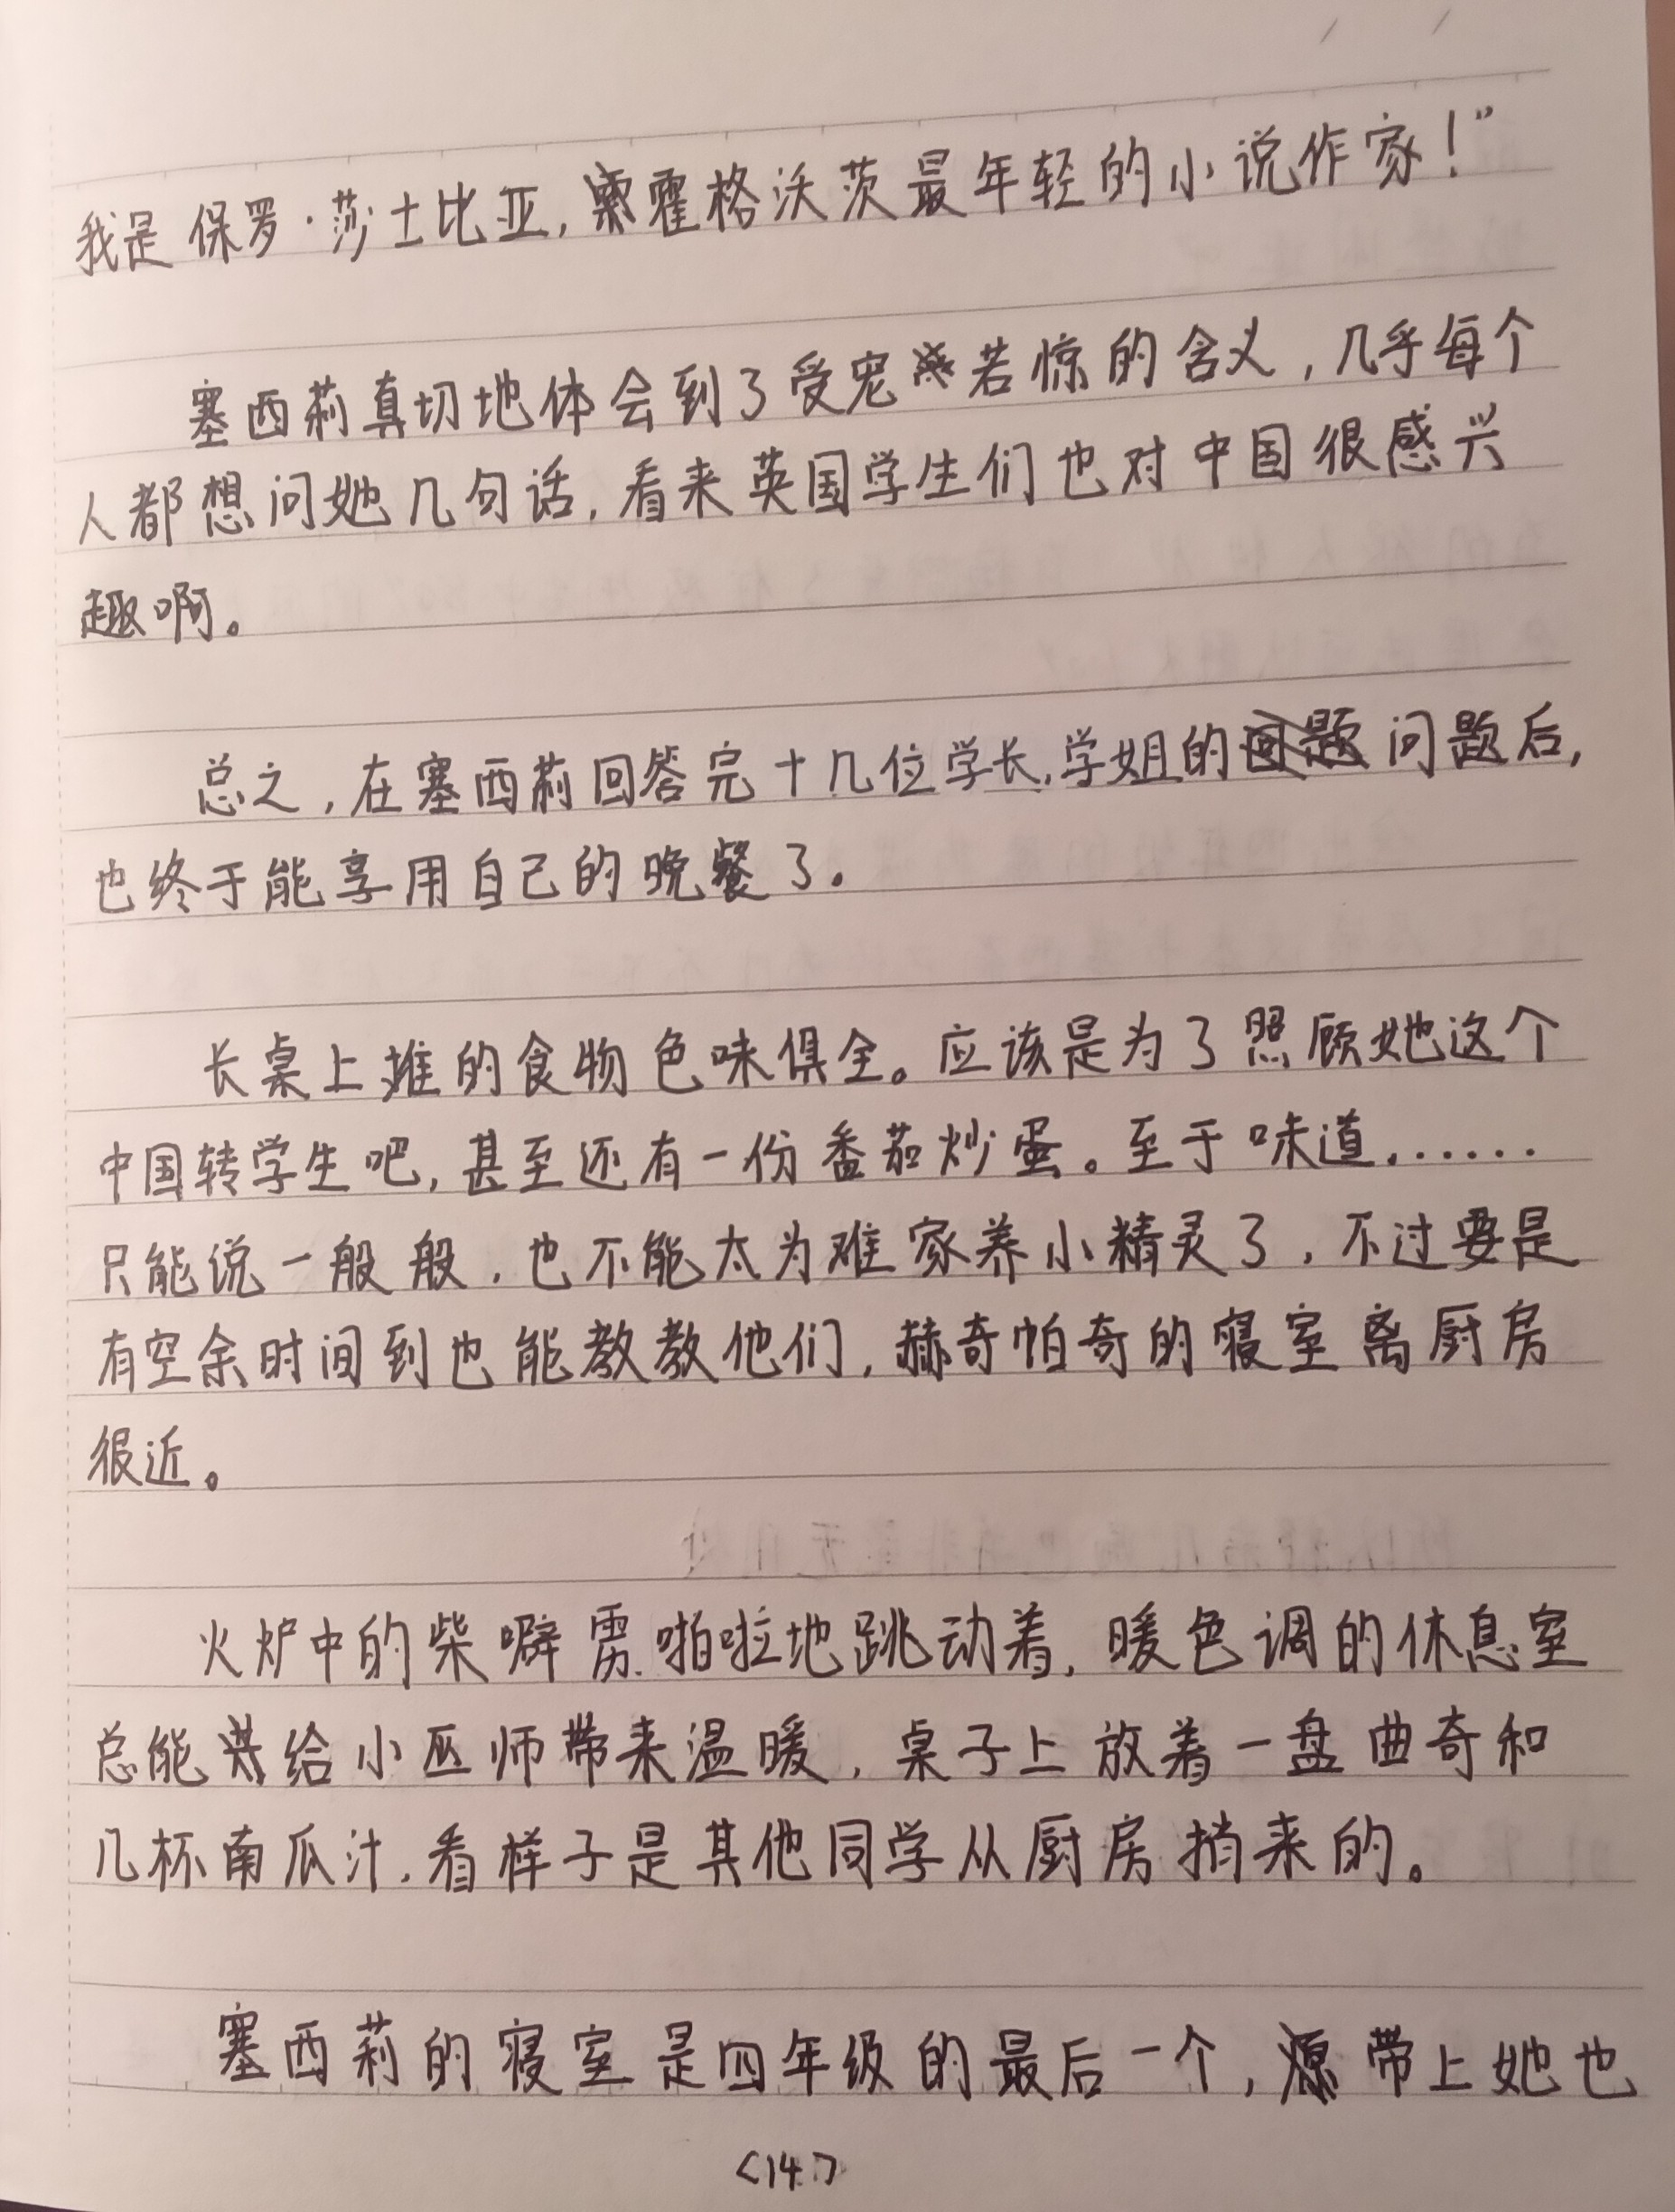 我是保罗·莎士比亚，霍格沃茨最年轻的小说作家！”
塞西莉真切地体会到了受宠若惊的含义，几乎每个
人都想问她几句话，看来英国学生们也对中国很感兴
趣啊。
总之，在塞西莉回答完十几位学长，学姐的问题后，
也终于能享用自己的晚餐了。
长桌上摊的食物色味俱全。应该是为了照顾她这个
中国转学生吧，甚至还有一份番茄炒蛋。至于味道，……
只能说一般般，也不能太为难家养小精灵了，不过要是
有空余时间到也能教教他们，赫奇帕奇的寝室离厨房
很近。
火炉中的柴噼雳啪啦地跳动着，暖色调的休息室
总能给小巫师带来温暖，桌子上放着一盘曲奇和
几杯南瓜汁，看样子是其他同学从厨房捎来的。
塞西莉的寝室是四年级的最后一个，带上她也
<14>